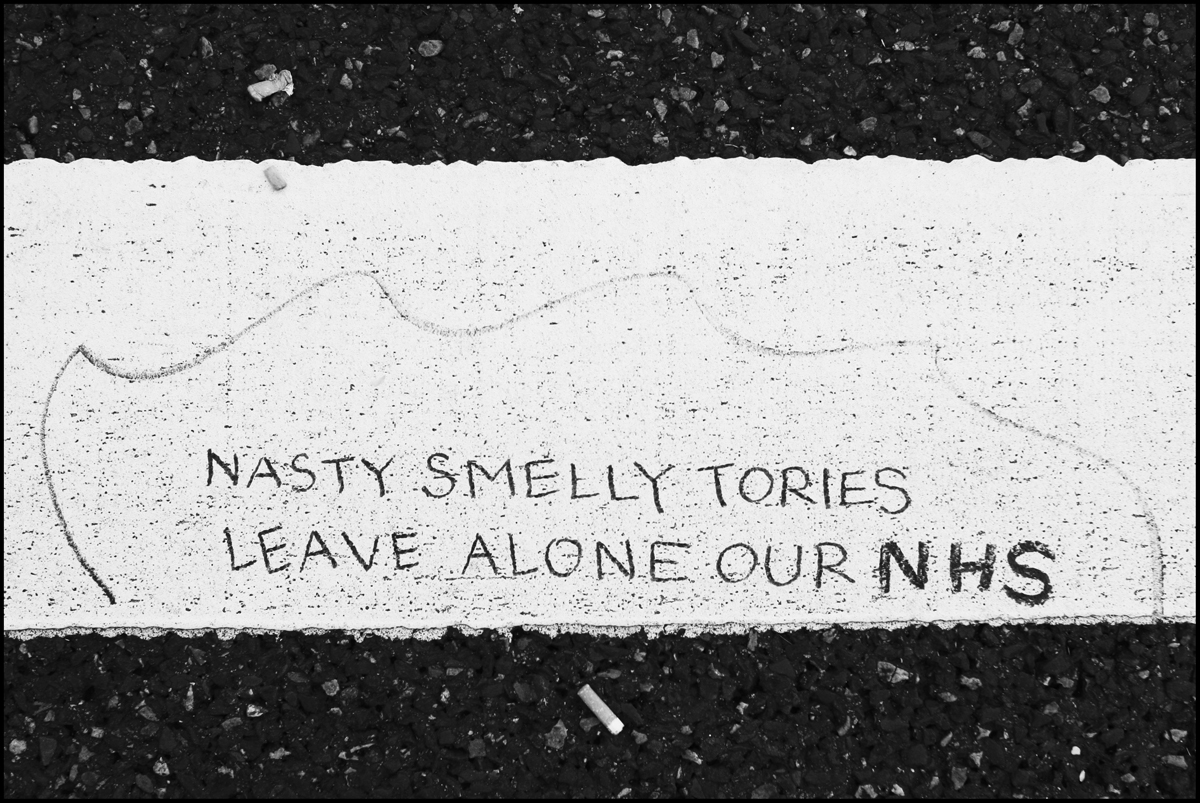 NASTY SMELLY TORIES
LEAVE ALONE OUR NHS